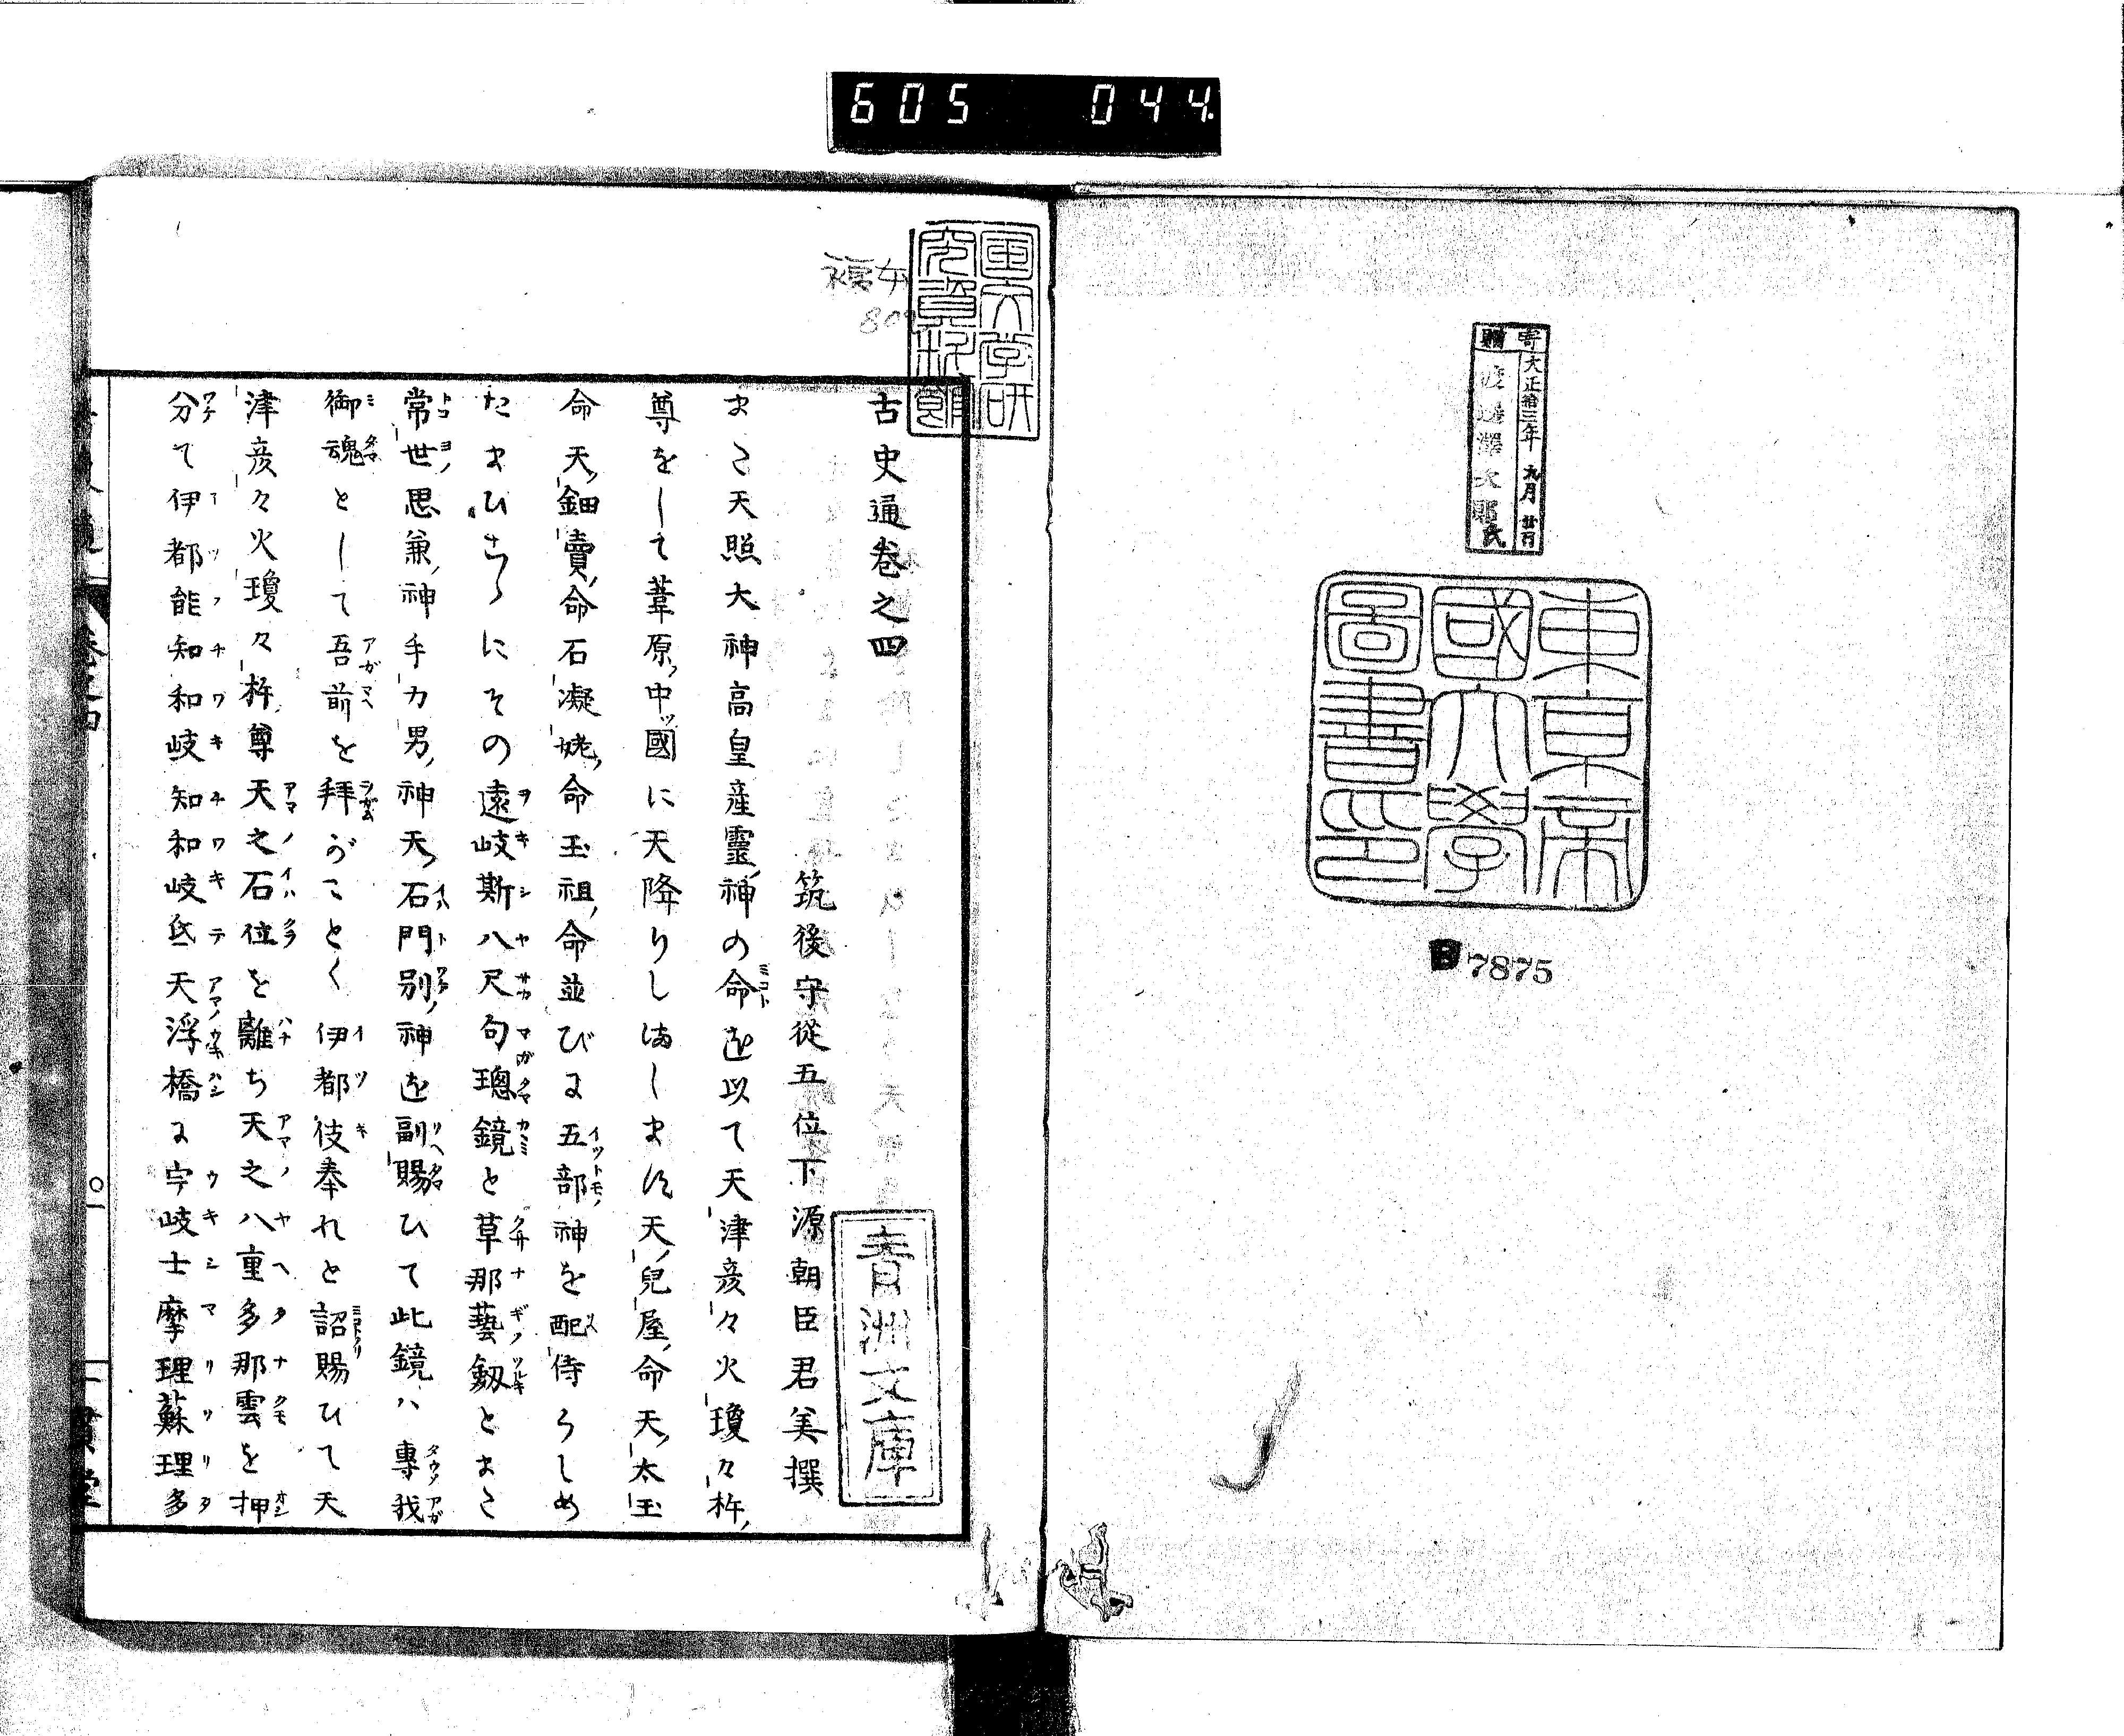 605 044
寄贈
大正拾三年 九月 廿日
渡邊澤次郎氏
東京帝
國大學
圖書印
B 7875
国文学研
究資料館
複本
青洲文庫
古史通巻之四
筑後守従五位下源朝臣君美撰
まさ天照大神高皇産靈神の命を以て天津彦々火瓊々杵
尊をして葦原中國に天降りしましまし天兒屋命天太玉
命天鈿賣命石凝姥命玉祖命並びに五部神を配侍らしめ
たまひさらにその遠岐斯八尺句璁鏡と草那藝劔とまさ
常世思兼神手力男神天石門別神を副賜ひて此鏡ハ専我
御魂として吾前を拜がことく伊都伎奉れと詔賜ひて天
津彦々火瓊々杵尊天之石位を離ち天之八重多那雲を押
分て伊都能知和岐知和岐氐天浮橋に宇岐士摩理蘇理多
巻之四
〇一